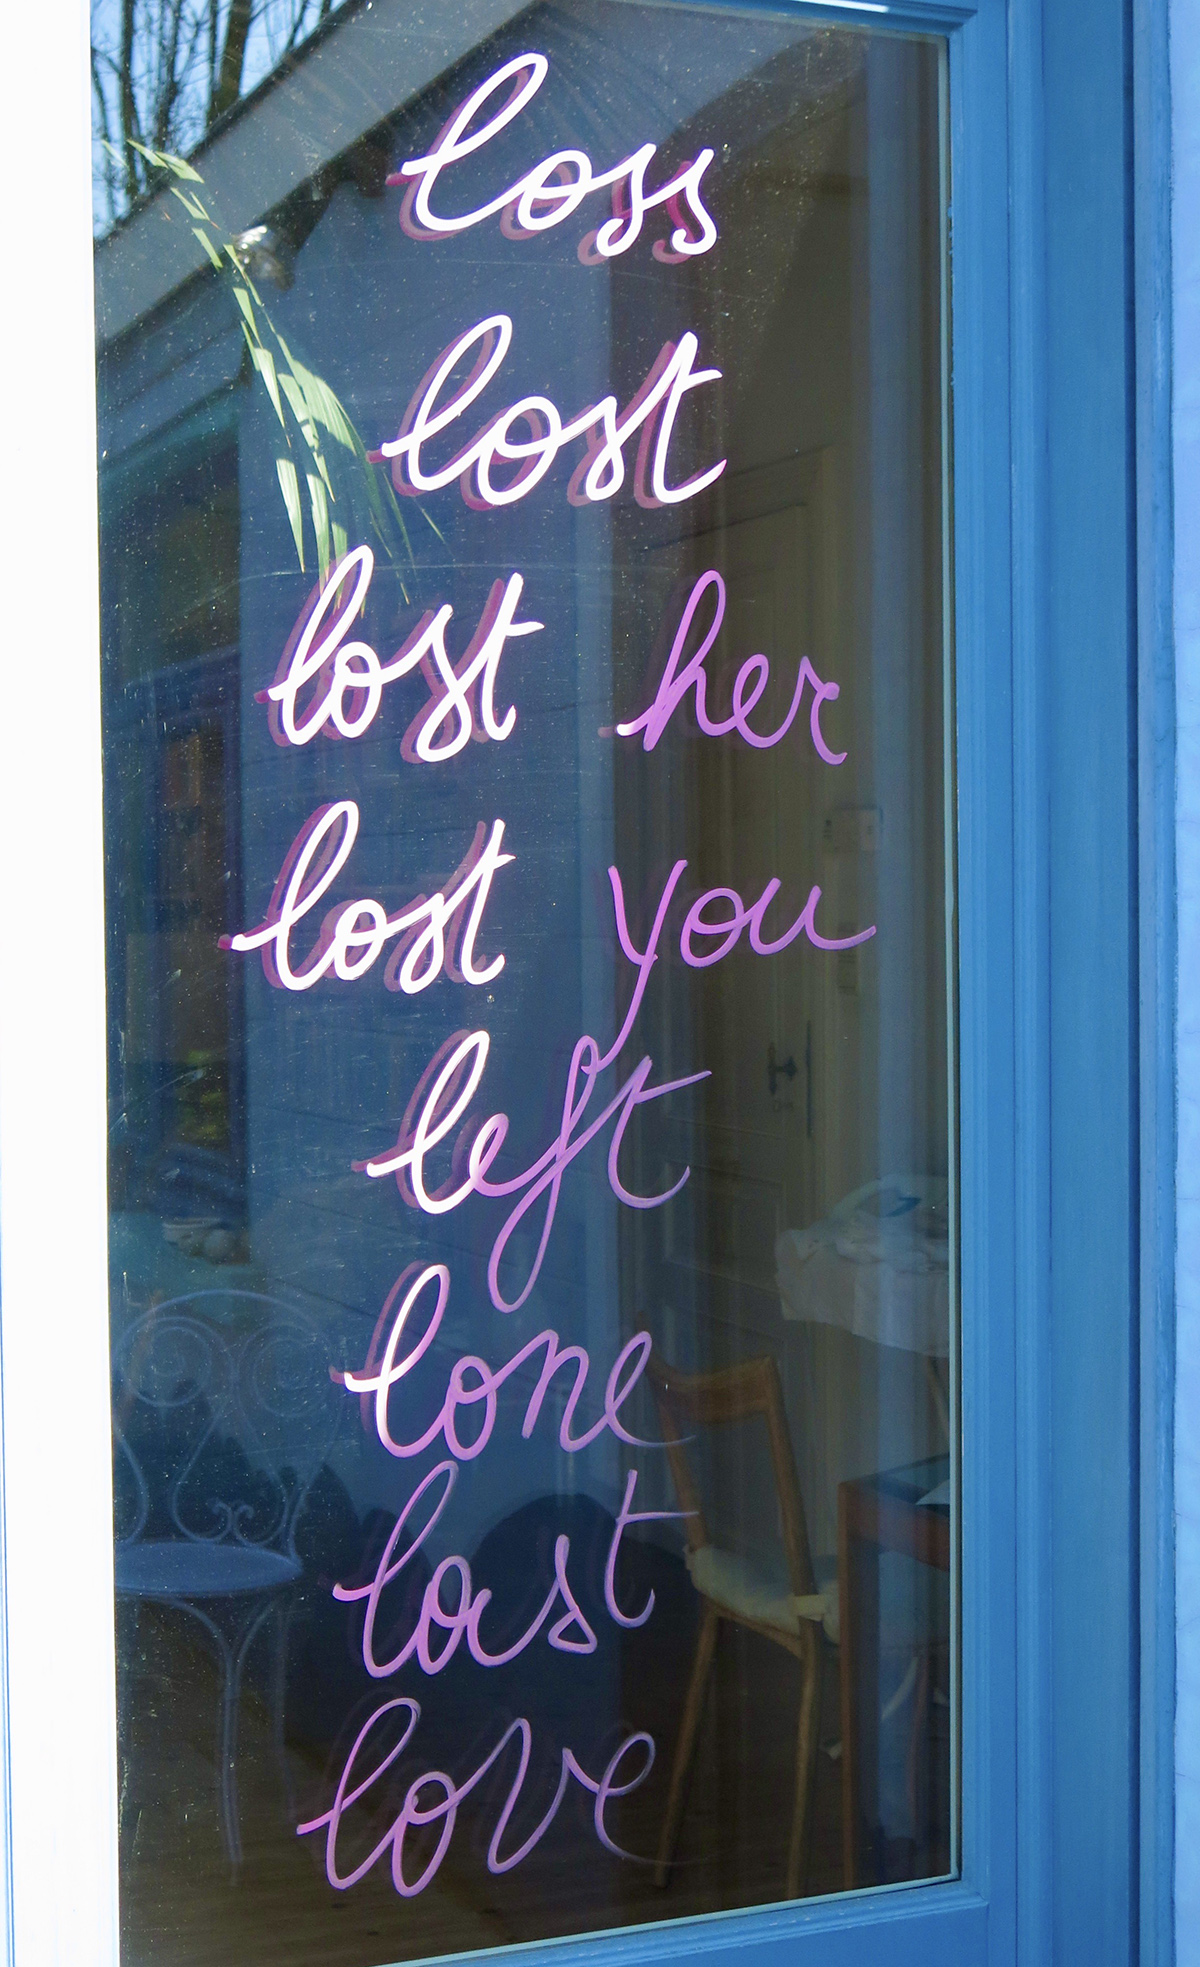 loss
lost
lost her
lost you
left
lone
last
love